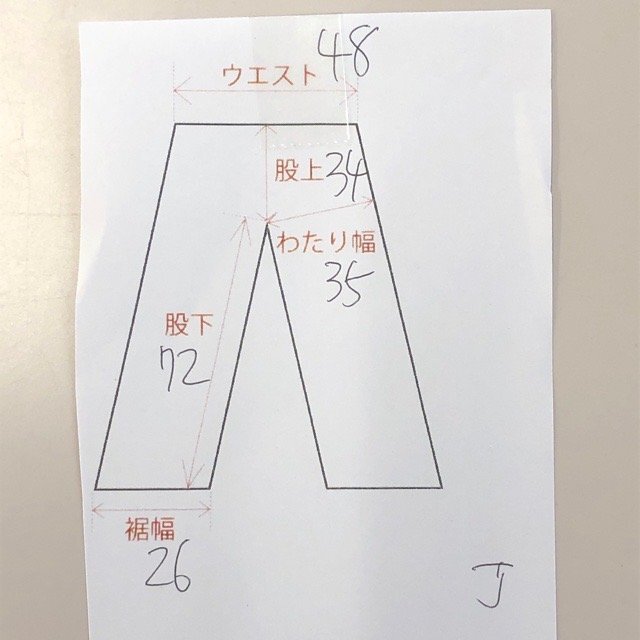 ウエスト 48
股上 34
わたり幅
35
股下
72
裾幅
26
J